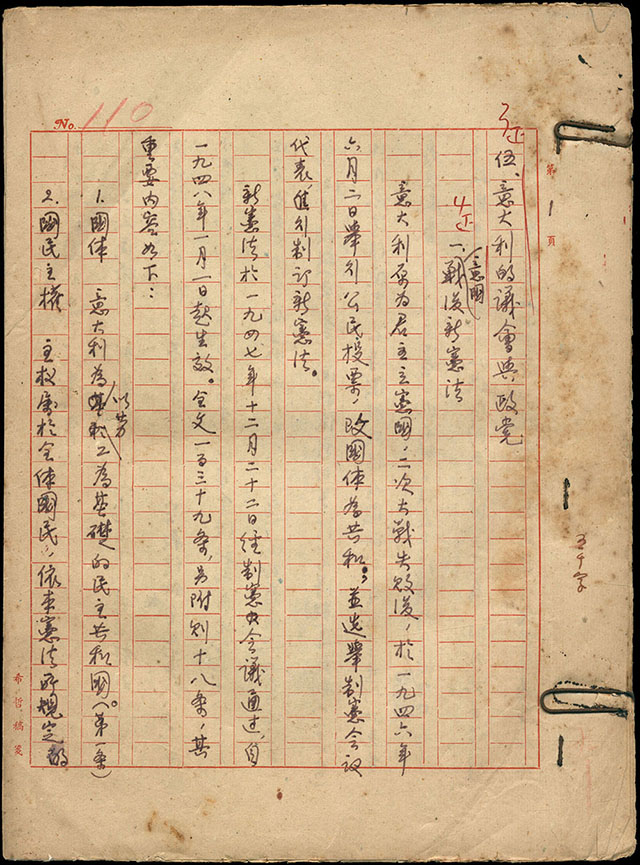 No. 110
第 1 頁
伍、意大利的議會與政党
一、戰後新憲法
意國
意大利原为君主立憲國，二次大戰失敗後，於一九四六年
六月二日舉行公民投票，改國体为共和，並选舉制憲会议
代表，進行制订新憲法。
新憲法於一九四七年十二月二十二日經制憲会議通过，自
一九四八年一月一日起生效。全文一百三十九条，另附则十八条，其
重要内容如下：
1. 國体 意大利為以劳工為基礎的民主共和國。（第一条）
2. 國民主權 主权屬於全体國民，依本憲法所规定的
五千字
希哲稿笺